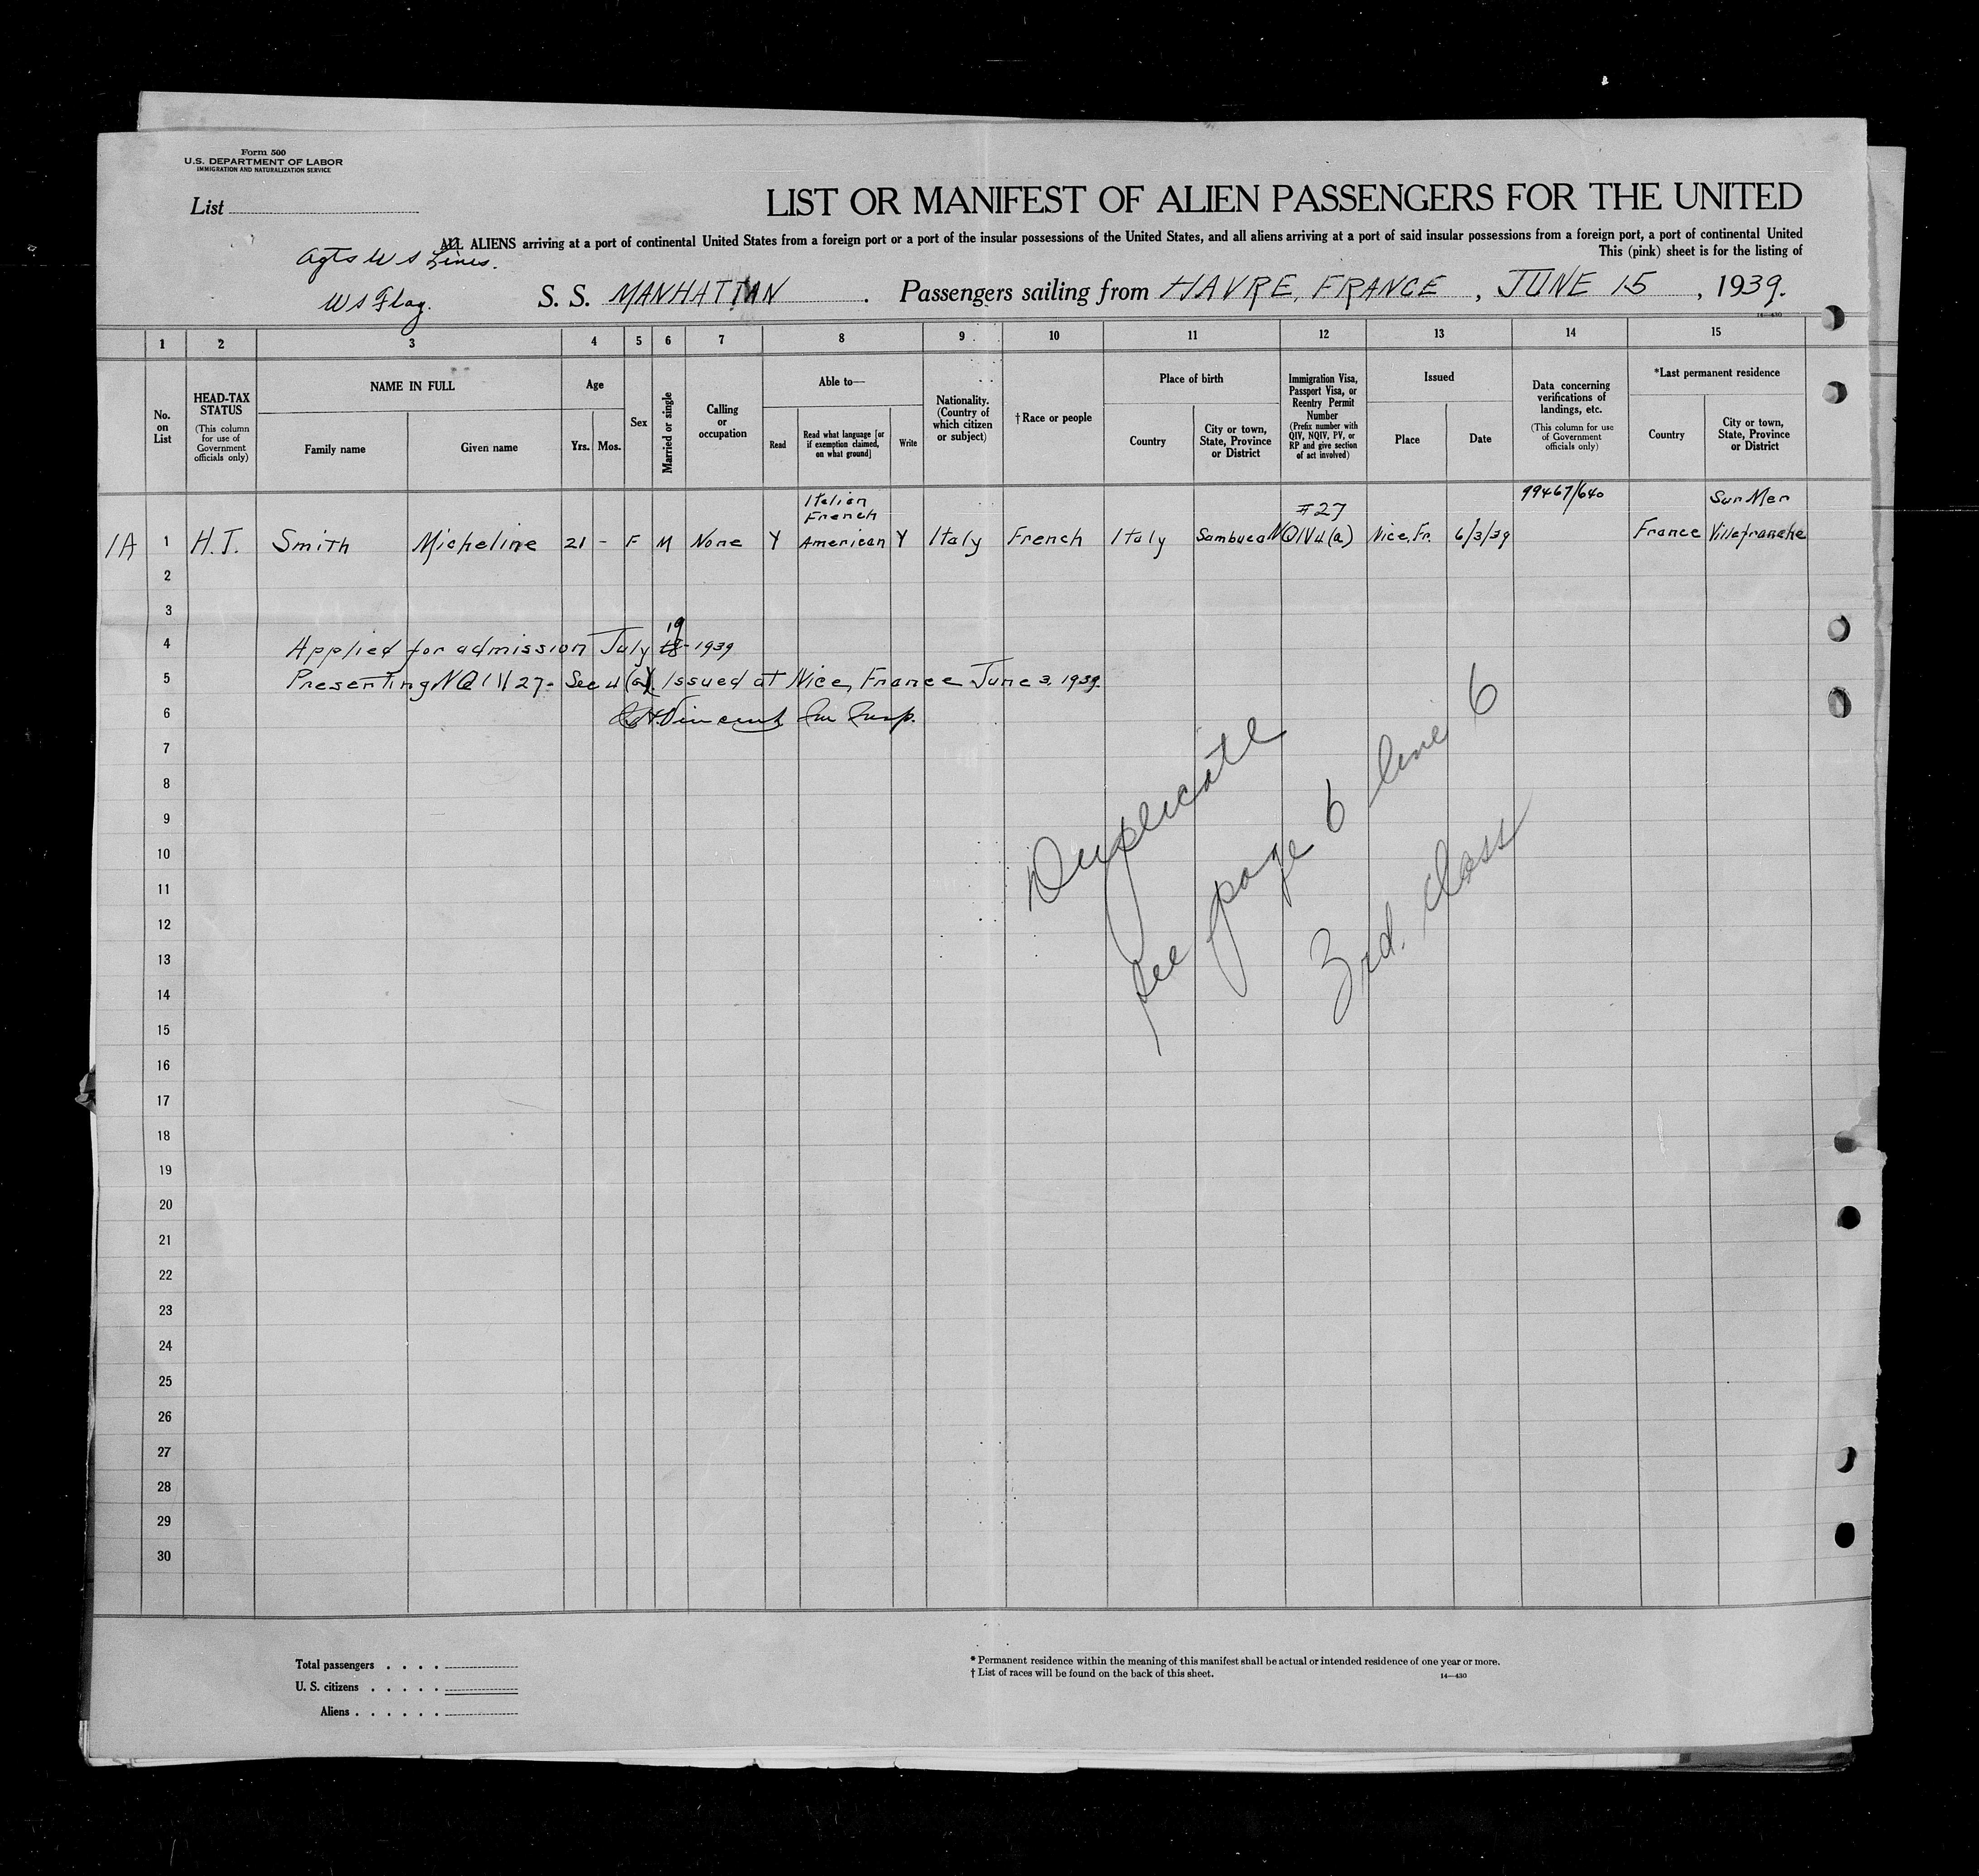 Form 500
U.S. DEPARTMENT OF LABOR
IMMIGRATION AND NATURALIZATION SERVICE
List
LIST OR MANIFEST OF ALIEN PASSENGERS FOR THE UNITED
ALL ALIENS arriving at a port of continental United States from a foreign port or a port of the insular possessions of the United States, and all aliens arriving at a port of said insular possessions from a foreign port, a port of continental United
This (pink) sheet is for the listing of
Agts U S Lines.
U S Flag.
S. S. MANHATTAN. Passengers sailing from HAVRE, FRANCE, JUNE 15, 1939.
14—430
1 2 3 4 5 6 7 8 9 10 11 12 13 14 15
No. on List
HEAD-TAX STATUS
(This column for use of Government officials only)
NAME IN FULL
Family name
Given name
Age
Yrs. Mos.
Sex
Married or single
Calling or occupation
Able to—
Read
Read what language [or if exemption claimed, on what ground]
Write
Nationality. (Country of which citizen or subject)
†Race or people
Place of birth
Country
City or town, State, Province or District
Immigration Visa, Passport Visa, or Reentry Permit Number
(Prefix number with QIV, NQIV, PV, or RP and give section of act involved)
Issued
Place
Date
Data concerning verifications of landings, etc.
(This column for use of Government officials only)
*Last permanent residence
Country
City or town, State, Province or District
Italian French #27 99467/640 Sur Mer
1A 1 H.T. Smith Micheline 21 - F M None Y American Y Italy French Italy Sambuca NQIV4(a) Nice, Fr. 6/3/39 France Villefranche
2
3
19
4 Applied for admission July 18 1939
5 Presenting NQIV 27- Sec 4(a). Issued at Nice, France June 3, 1939.
6 Vincent Im Insp.
7
8
9
10
11
12
13
14
15
16
17
18
19
20
21
22
23
24
25
26
27
28
29
30
Duplicate
see page 6 line 6
3rd. Class
Total passengers . . . .
U. S. citizens . . . . .
Aliens . . . . . .
* Permanent residence within the meaning of this manifest shall be actual or intended residence of one year or more.
† List of races will be found on the back of this sheet.
14—430